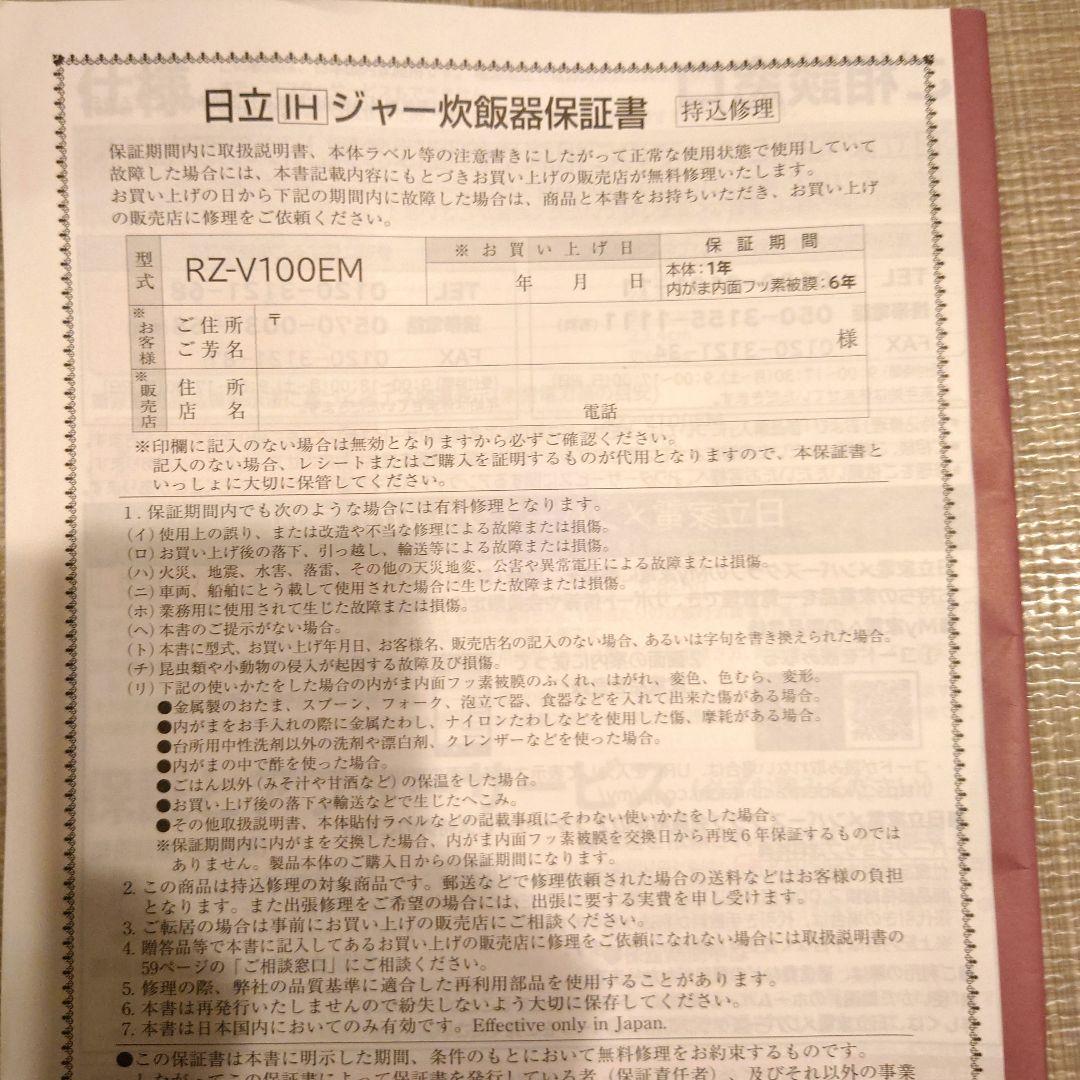 日立IHジャー炊飯器保証書 持込修理
保証期間内に取扱説明書、本体ラベル等の注意書きにしたがって正常な使用状態で使用していて
故障した場合には、本書記載内容にもとづきお買い上げの販売店が無料修理いたします。
お買い上げの日から下記の期間内に故障した場合は、商品と本書をお持ちいただき、お買い上げ
の販売店に修理をご依頼ください。
型式 RZ-V100EM
※お買い上げ日
年 月 日
保証期間
本体：1年
内がま内面フッ素被膜：6年
※お客様
ご住所 〒
ご芳名 様
※販売店
住所
店名 電話
※印欄に記入のない場合は無効となりますから必ずご確認ください。
記入のない場合、レシートまたはご購入を証明するものが代用となりますので、本保証書と
いっしょに大切に保管してください。
1. 保証期間内でも次のような場合には有料修理となります。
(イ) 使用上の誤り、または改造や不当な修理による故障または損傷。
(ロ) お買い上げ後の落下、引っ越し、輸送等による故障または損傷。
(ハ) 火災、地震、水害、落雷、その他の天災地変、公害や異常電圧による故障または損傷。
(ニ) 車両、船舶にとう載して使用された場合に生じた故障または損傷。
(ホ) 業務用に使用されて生じた故障または損傷。
(ヘ) 本書のご提示がない場合。
(ト) 本書に型式、お買い上げ年月日、お客様名、販売店名の記入のない場合、あるいは字句を書き換えられた場合。
(チ) 昆虫類や小動物の侵入が起因する故障及び損傷。
(リ) 下記の使いかたをした場合の内がま内面フッ素被膜のふくれ、はがれ、変色、色むら、変形。
●金属製のおたま、スプーン、フォーク、泡立て器、食器などを入れて出来た傷がある場合。
●内がまをお手入れの際に金属たわし、ナイロンたわしなどを使用した傷、摩耗がある場合。
●台所用中性洗剤以外の洗剤や漂白剤、クレンザーなどを使った場合。
●内がまの中で酢を使った場合。
●ごはん以外(みそ汁や甘酒など)の保温をした場合。
●お買い上げ後の落下や輸送などで生じたへこみ。
●その他取扱説明書、本体貼付ラベルなどの記載事項にそわない使いかたをした場合。
※保証期間内に内がまを交換した場合、内がま内面フッ素被膜を交換日から再度6年保証するものでは
ありません。製品本体のご購入日からの保証期間になります。
2. この商品は持込修理の対象商品です。郵送などで修理依頼された場合の送料などはお客様の負担
となります。また出張修理をご希望の場合には、出張に要する実費を申し受けます。
3. ご転居の場合は事前にお買い上げの販売店にご相談ください。
4. 贈答品等で本書に記入してあるお買い上げの販売店に修理をご依頼になれない場合には取扱説明書の
59ページの「ご相談窓口」にご相談ください。
5. 修理の際、弊社の品質基準に適合した再利用部品を使用することがあります。
6. 本書は再発行いたしませんので紛失しないよう大切に保存してください。
7. 本書は日本国内においてのみ有効です。Effective only in Japan.
●この保証書は本書に明示した期間、条件のもとにおいて無料修理をお約束するものです。
したがってこの保証書によって保証書を発行している者（保証責任者）、及びそれ以外の事業